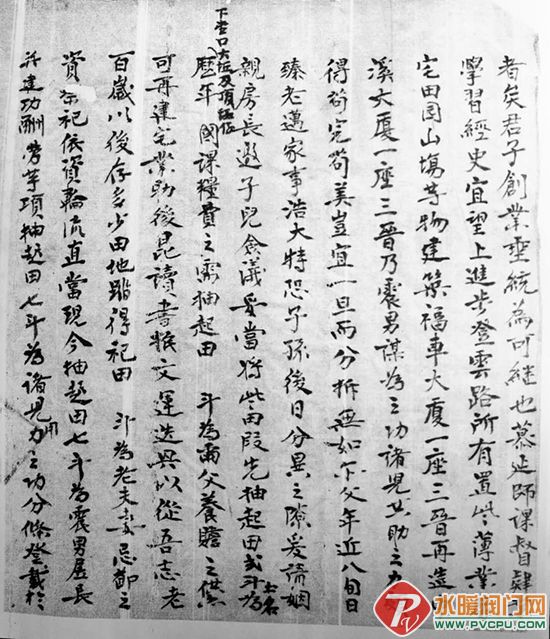 者矣君子創業垂統為可継也慕延師课督肆
學習經史宜望上進步登雲路所有置些薄業
宅田園山塲等物建築福車大厦一座三晋再造
溪大厦一座三晋乃震男谋為之功諸兒共助之力
得苟完苟美豈宜一旦而分拆無如尔父年近八旬日
臻老邁家事浩大特恐子孫後日分異之隙爰請姻
親房長邀子兒僉議妥當將些田段先抽起田弍斗為
土名
下坌口大坵及頂
歷年國课糧費之需抽起田 斗為爾父養贍之供
可再建宅業助後昆讀書猴文運迭興以從吾志老
百歲以後存多少田地踏得祀田 斗為老夫妻忌𨞬之
資祭祀依資輪流直當現今抽起田七斗為震男居長
許建功酬勞等項抽起田七斗為諸兒力之功分條登載於
用
水暖阀门网
WWW.PVCPU.COM